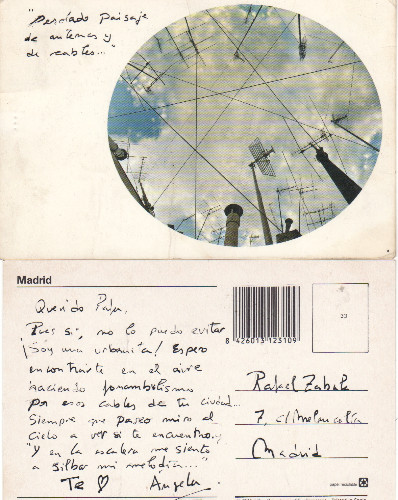 "Desolado paisaje
de antenas y
de cables..."
Madrid
Querido Rafa,
Pues sí, no lo puedo evitar
¡Soy una urbanita! Espero
encontrarte en el aire
haciendo funambulismo
por esos cables de tu ciudad...
Siempre que paseo miro al
cielo a ver si te encuentro, y
"Y en la escalera me siento
a silbar mi melodía..."
Te ♡ Ángela
8 426013 123109
Rafael Zabala
7, c/ Melancolía
Madrid